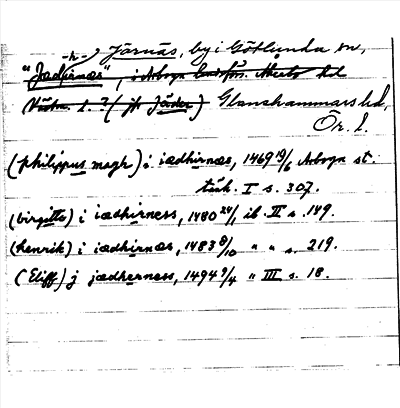 -n-) Järnäs, by i Götlunda sn,
"Jædhirnæs", i Arboga landsförs. Åkerbo hd
Västm. l. ? (jfr Jäder) Glanshammars hd,
Ör. l.
(philippus magh) i iædhirnæs, 1469 19/6 Arboga st:
tänk. I s. 307.
(birgitte) i iædhirness, 1480 24/11 ib. II s. 149.
(henrik) i iædhirnæs, 1483 8/10 " " s. 219.
(Eliff) j jædherness, 1494 7/4 " III s. 18.